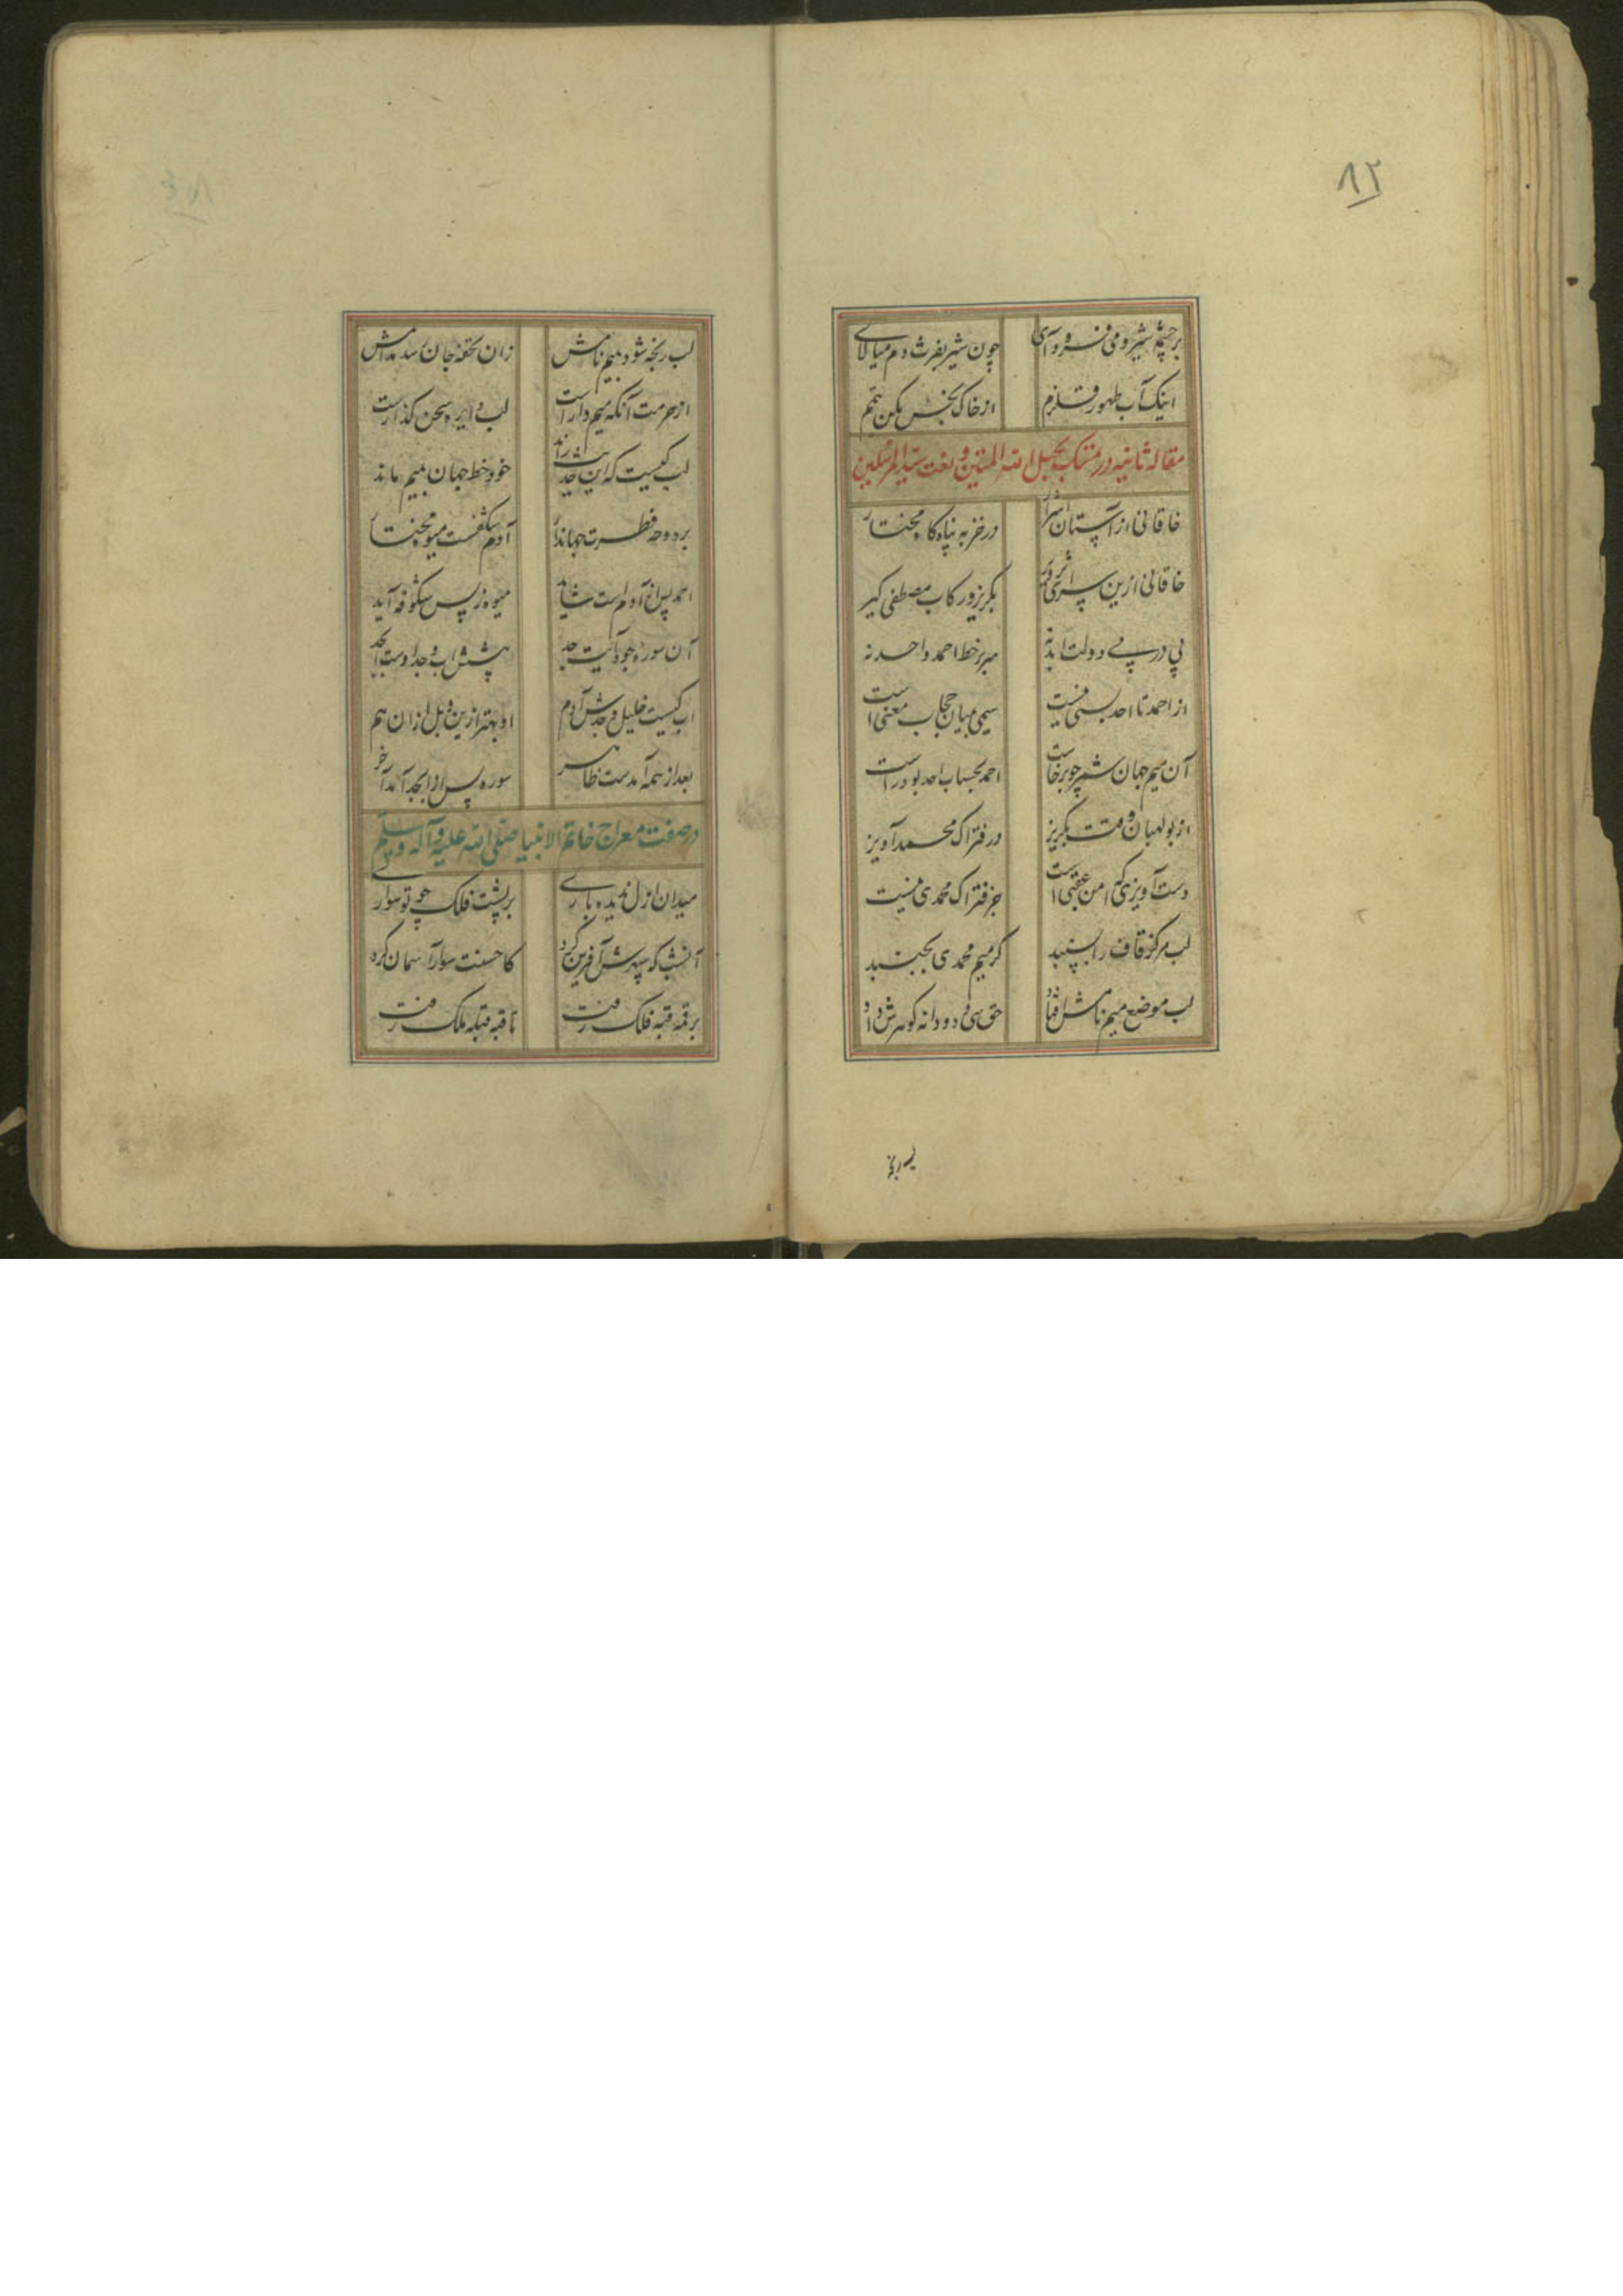 ۸۲
بر چشمه شیر و می فرود آی
چون شیر بفرث و دم میالای
اینک آب طهور و قلزم
از خاک نجس مکن تیمم
مقاله ثانیه در تمسک بحبل الله المتین و نعت سید المرسلین
خاقانی از آستان اشرار
در خز به پناه کاه مختار
خاقانی ازین سرای
بگریز و رکاب مصطفی گیر
پی در پی دولت ابد نه
سر بر خط احمد و احد نه
از احمد تا احد بسی نیست
میمی میان حجاب معنی است
آن میم جهان شمر چو برخاست
احمد بحساب احد بود راست
از بولهبان وقت بگریز
در فتراک محمد آویز
دست آویزی که امن عقبی است
جز فتراک محمدی نیست
لب مرکز قاف را بسنبد
کر میم محمدی بجنبد
لب موضع میم نامش افتاد
حق سی و دو دانه گوهرش داد
لب رنجه
لب رنجه شود بمیم نامش
زان تحفه جان رسد مدامش
از حرمت آنکه میم دار است
لب دایره سخن گذار است
لب کیست که این حدیث راند
خود خط جهان بمیم ماند
بر دوحه فطرت جهاندار
آدم شکفست میوه مختار
احمد پس از آدم است شاید
میوه ز پس شکوفه آید
آن سوره جود و آیت جد
پیشش اب و جد اوست ابجد
اب کیست خلیل و جدش آدم
او بهتر ازین و بل ازان هم
بعد از همه آمدست ظاهر
سوره پس از ابجد آمد آخر
در صفت معراج خاتم الانبیا صلی الله علیه و آله و سلم
میدان ازل ندیده باری
بر پشت فلک چو تو سواری
آنشب که سپهرش آفرین کرد
کاحسنت سوار آسمان کرد
بر قمه قبه فلک رفت
تا قبه قبله ملک رفت